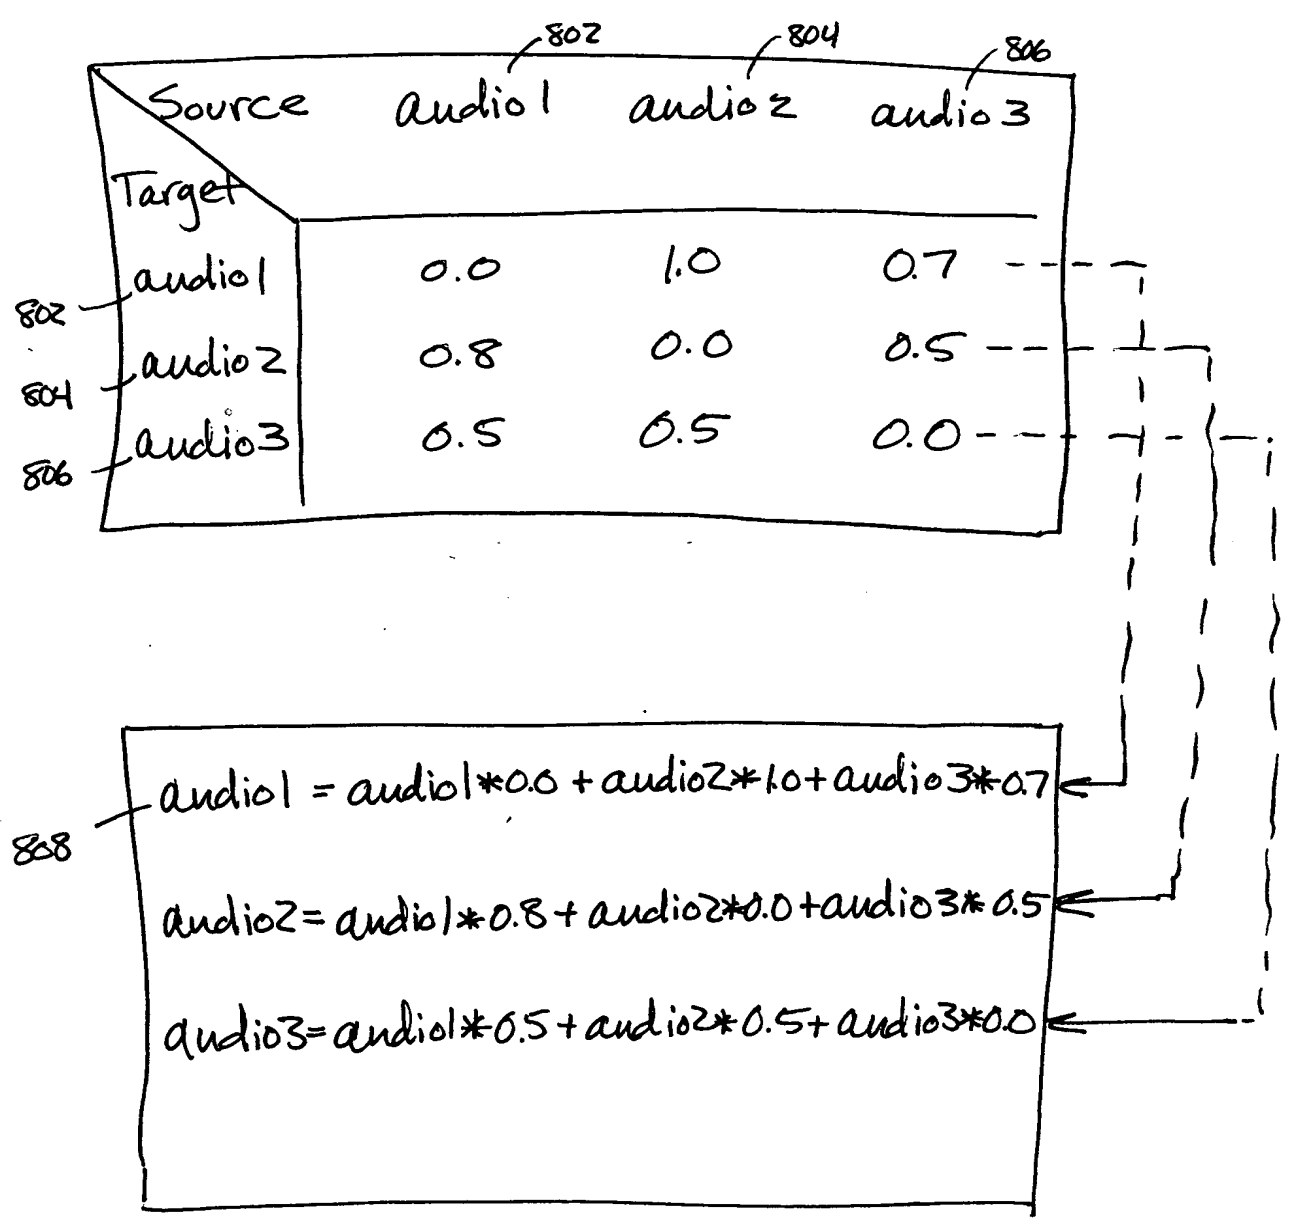 802 804 806
Source audio1 audio2 audio3
Target
audio1 0.0 1.0 0.7
802
audio2 0.8 0.0 0.5
804
audio3 0.5 0.5 0.0
806
audio1 = audio1*0.0 + audio2*1.0+audio3*0.7
808
audio2= audio1*0.8+ audio2*0.0+audio3*0.5
audio3= audio1*0.5+audio2*0.5+audio3*0.0